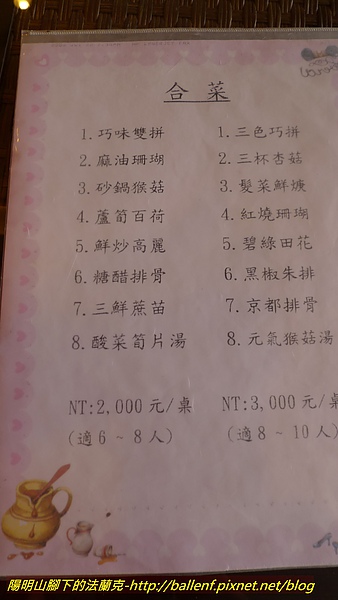 合菜
1.巧味雙拼
2.麻油珊瑚
3.砂鍋猴菇
4.蘆筍百荷
5.鮮炒高麗
6.糖醋排骨
7.三鮮蔗苗
8.酸菜筍片湯
NT:2,000元/桌
(適6~8人)
1.三色巧拼
2.三杯杏菇
3.髮菜鮮㸆
4.紅燒珊瑚
5.碧綠田花
6.黑椒朱排
7.京都排骨
8.元氣猴菇湯
NT:3,000元/桌
(適8~10人)
陽明山腳下的法蘭克-http://ballenf.pixnet.net/blog